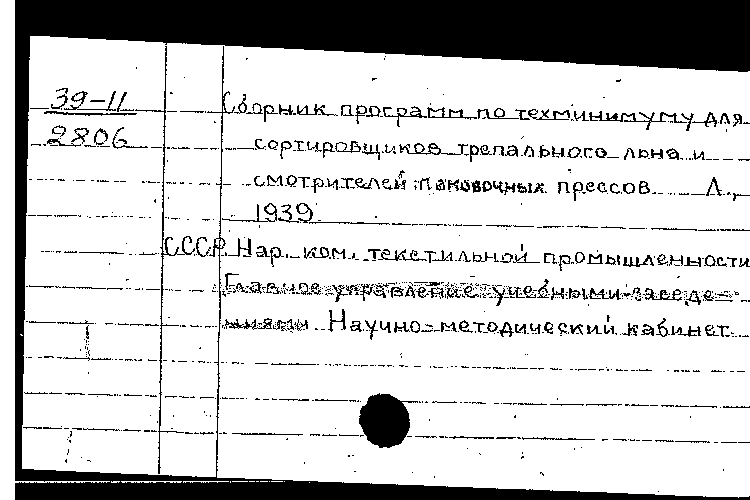 39-11
2806
Сборник программ по техминимуму для
сортировщиков трепального льна и
смотрителей паковочных прессов Л.,
1939
СССР Нар. ком. текстильной промышленности
Главное управление учебными заведе-
ниями Научно-методический кабинет.